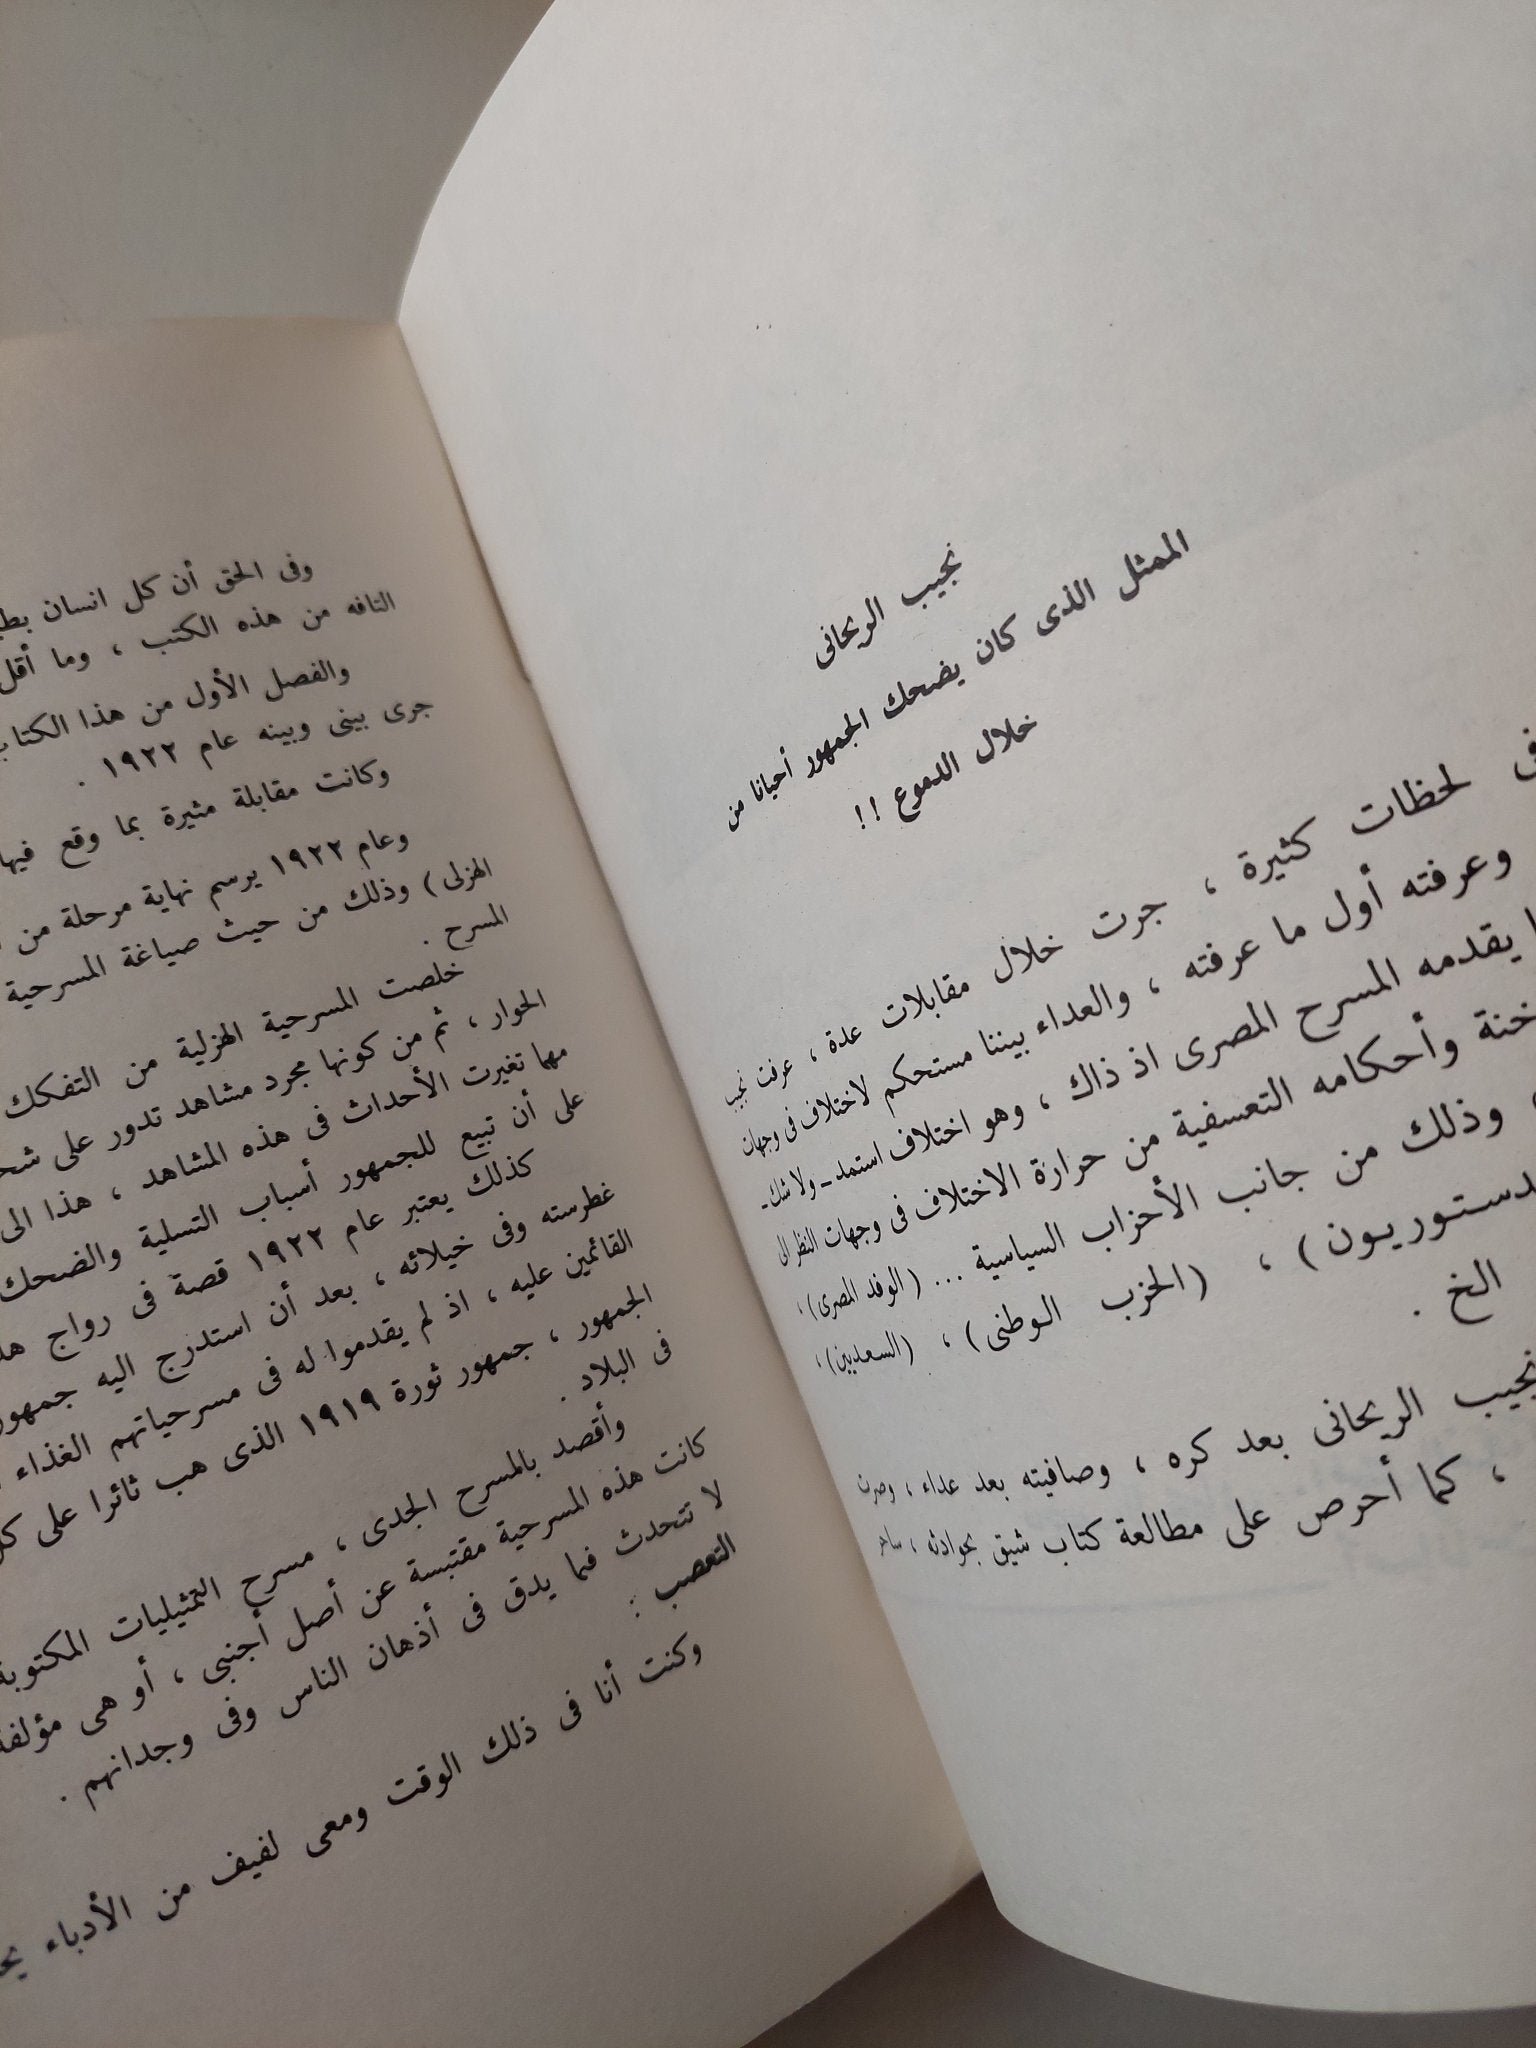 نجيب الريحانى
الممثل الذى كان يضحك الجمهور أحيانا من
خلال الدموع !!
لحظات كثيرة ، جرت خلال مقابلات عدة ، عرفت نجيب
وعرفته أول ما عرفته ، والعداء بيننا مستحكم لاختلاف فى وجهات
يقدمه المسرح المصرى اذ ذاك ، وهو اختلاف استمد ـ ولا شك ـ
وأحكامه التعسفية من حرارة الاختلاف فى وجهات النظر الى
وذلك من جانب الأحزاب السياسية ... (الوفد المصرى) ،
، (الحزب الوطنى) ، (السعديين) ،
الخ .
نجيب الريحانى بعد كره ، وصافيته بعد عداء ، وصرت
، كما أحرص على مطالعة كتاب شيق بحوادثه ، ساحر
وفى الحق أن كل انسان
التافه من هذه الكتب ، وما أقل
والفصل الأول من هذا الكتاب
جرى بينى وبينه عام ١٩٢٢ .
وكانت مقابلة مثيرة بما وقع فيها
وعام ١٩٢٢ يرسم نهاية مرحلة من
الهزلى) وذلك من حيث صياغة المسرحية
المسرح .
خلصت المسرحية الهزلية من التفكك
الحوار ، ثم من كونها مجرد مشاهد تدور على
مهما تغيرت الأحداث فى هذه المشاهد ، هذا الى
على أن تبيع للجمهور أسباب التسلية والضحك
كذلك يعتبر عام ١٩٢٢ قصة فى رواج
غطرسته وفى خيلائه ، بعد أن استدرج اليه جمهور
القائمين عليه ، اذ لم يقدموا له فى مسرحياتهم الغذاء
الجمهور ، جمهور ثورة ١٩١٩ الذى هب ثائرا على
فى البلاد .
وأقصد بالمسرح الجدى ، مسرح التمثيليات المكتوبة
كانت هذه المسرحية مقتبسة عن أصل أجنبى ، أو هى مؤلفة
لا تتحدث فما يدق فى أذهان الناس وفى وجدانهم .
التعصب :
وكنت أنا فى ذلك الوقت ومعى لفيف من الأدباء